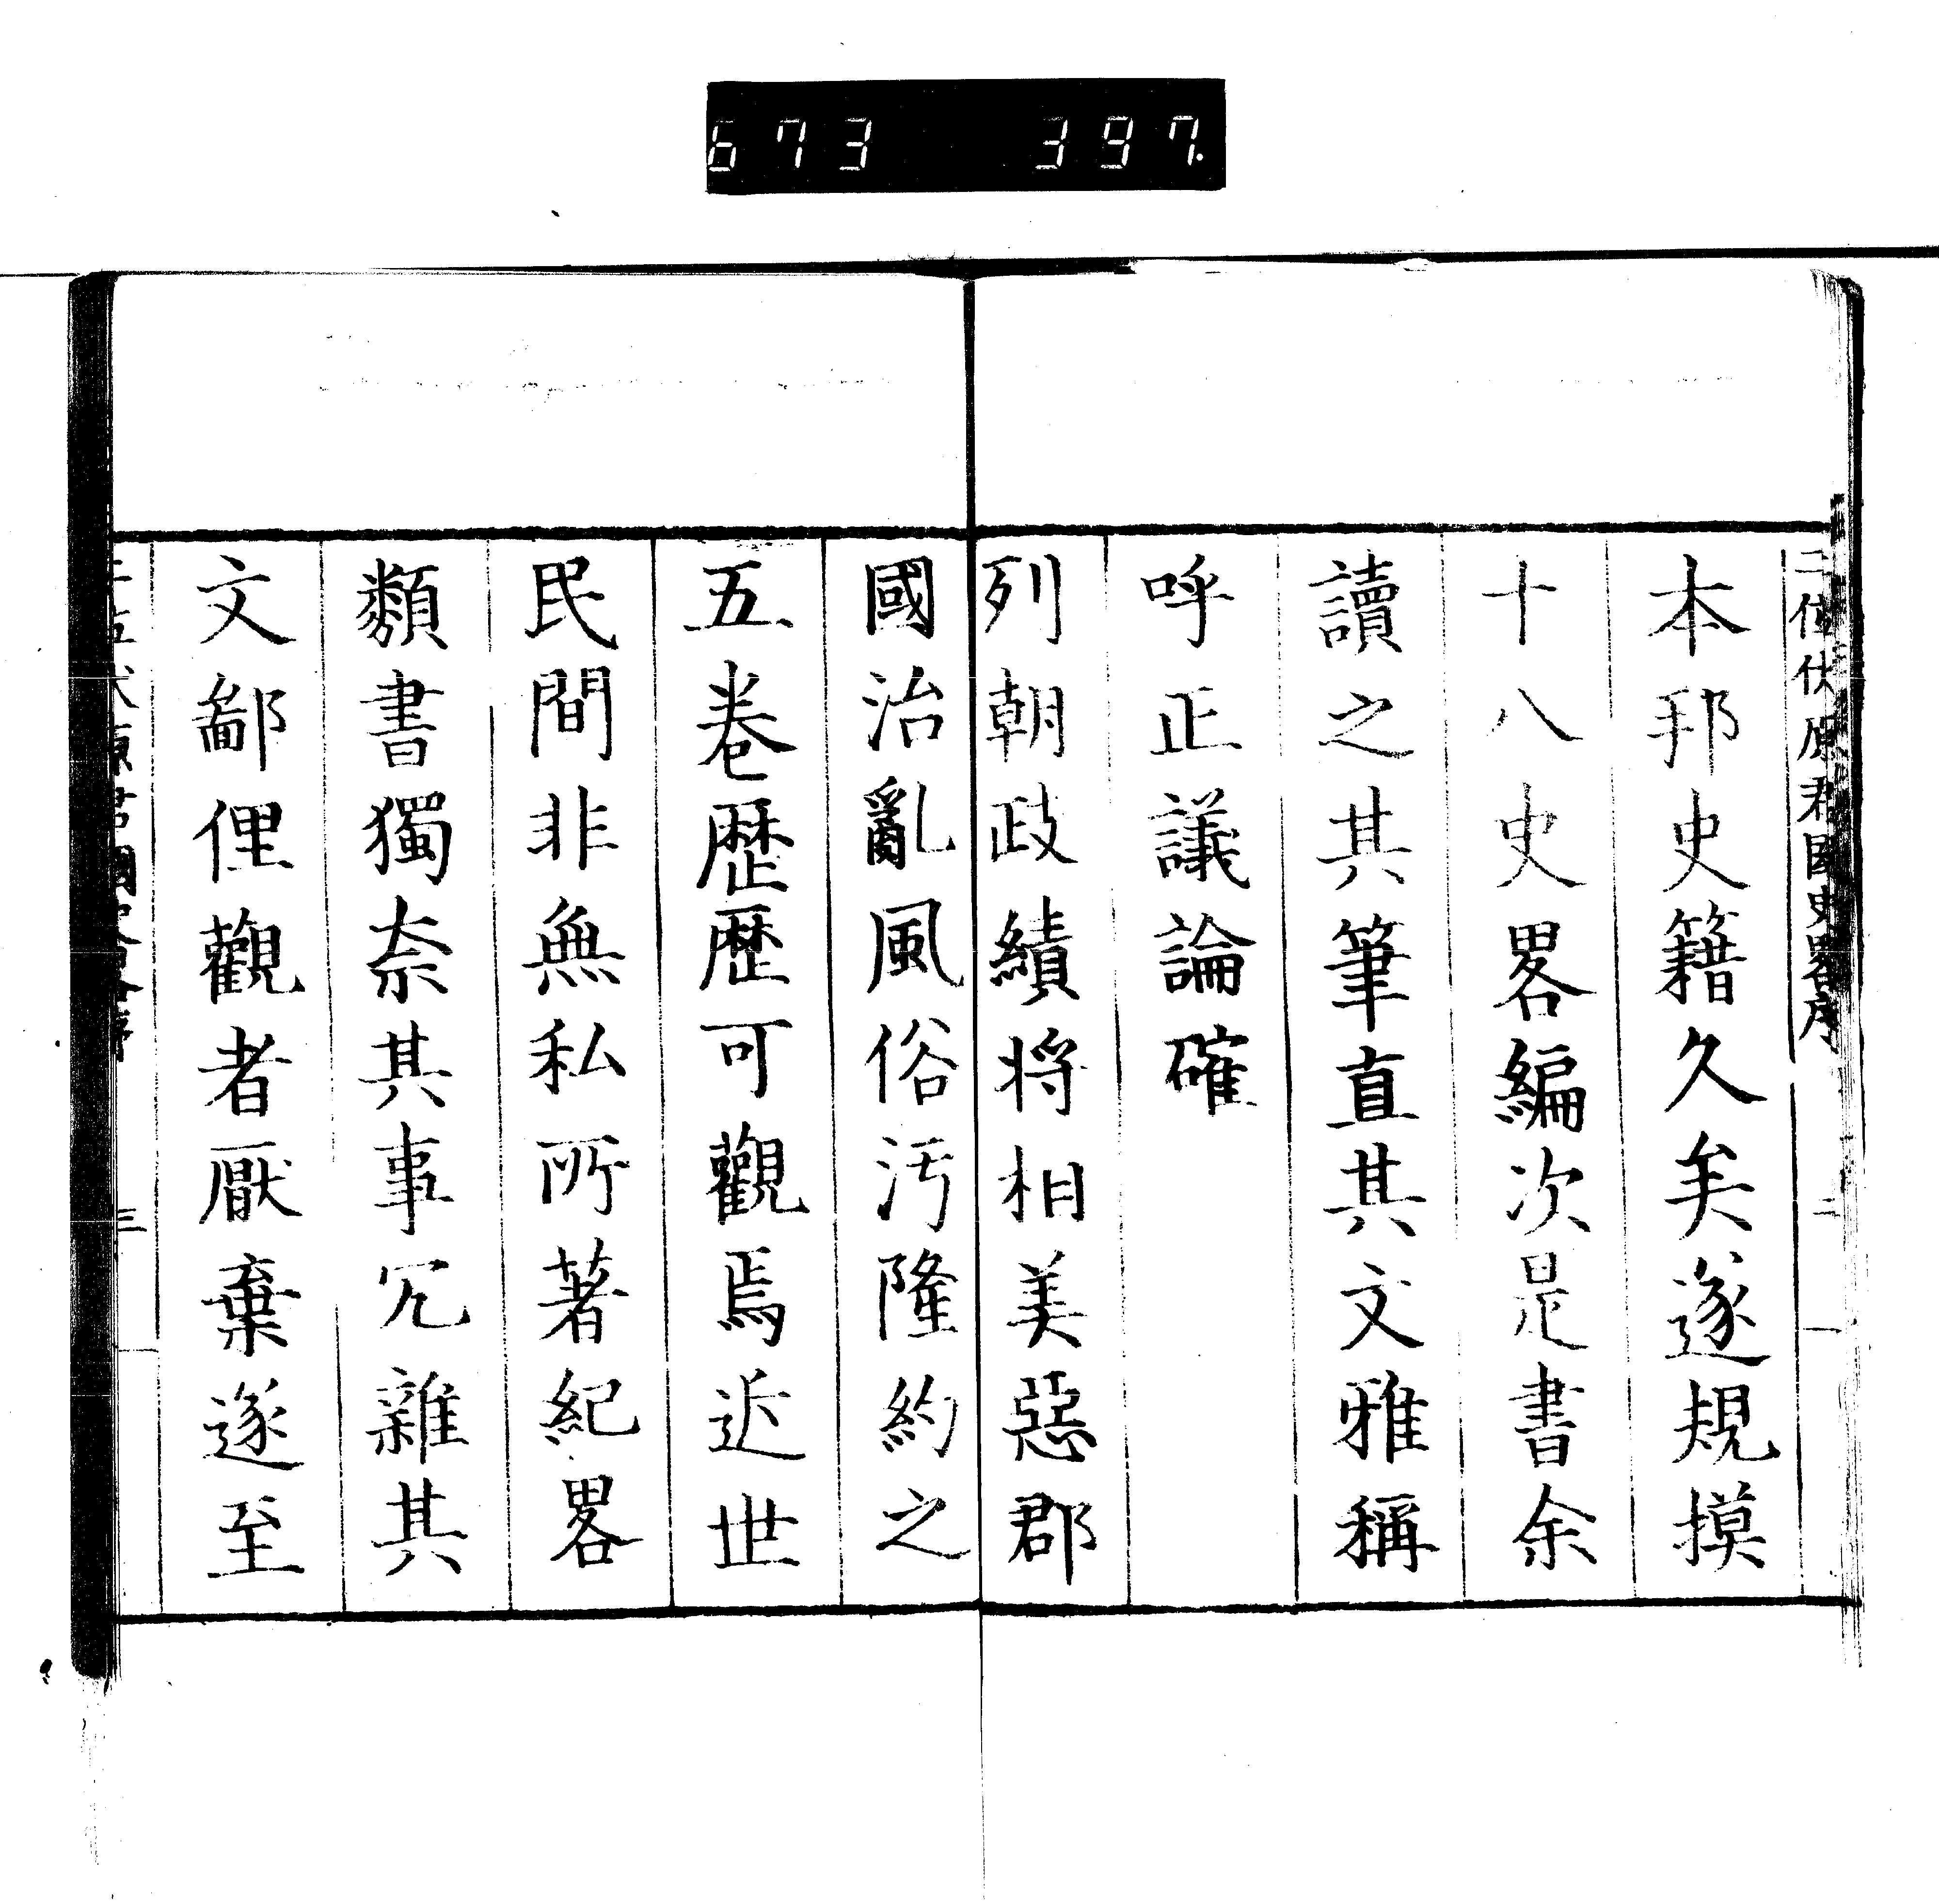 673 397.
二位伏原君國史畧序 二
本邦史籍久矣遂規摸
十八史畧編次是書余
讀之其筆直其文雅稱
呼正議論確
列朝政績将相美惡郡
國治亂風俗汚隆約之
五卷歴歴可觀焉近世
民間非無私所著紀畧
類書獨奈其事冗雜其
文鄙俚觀者厭棄遂至
三